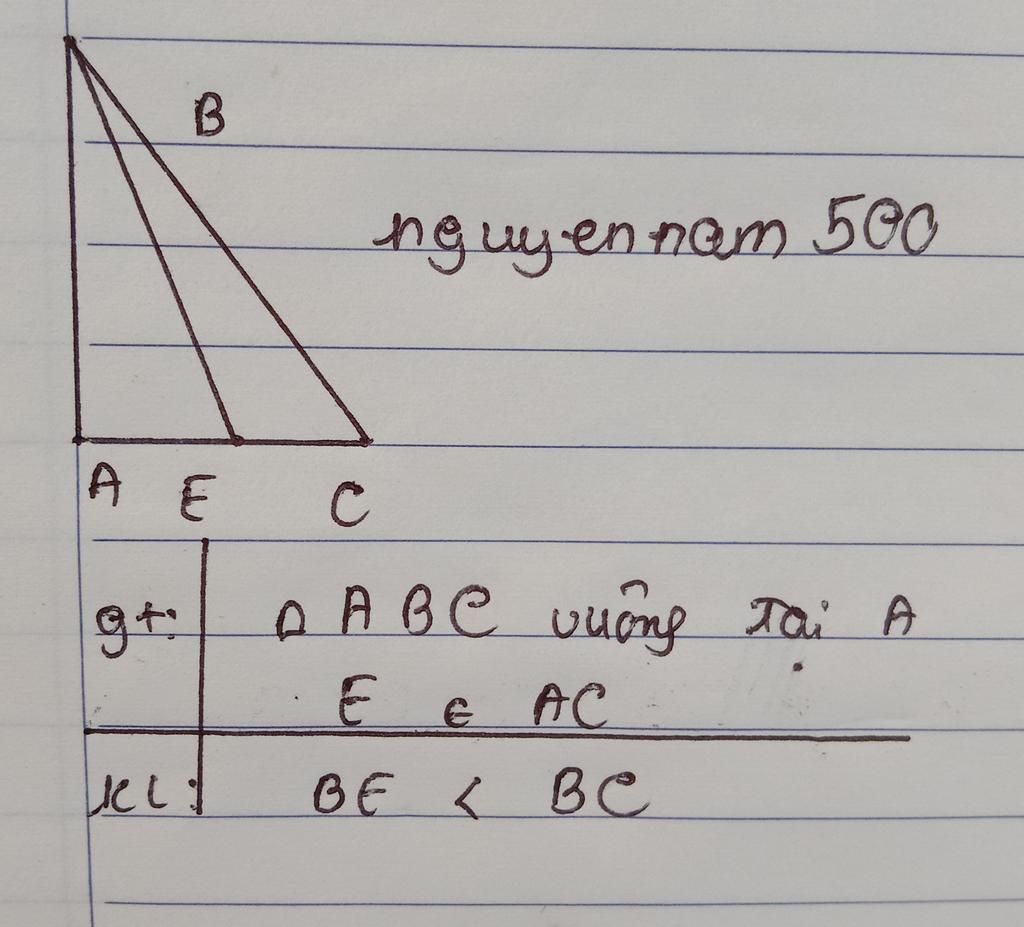 B
nguyennam 500
A E C
gt: Δ ABC vuông Tại A
E ∈ AC
KL: BE < BC